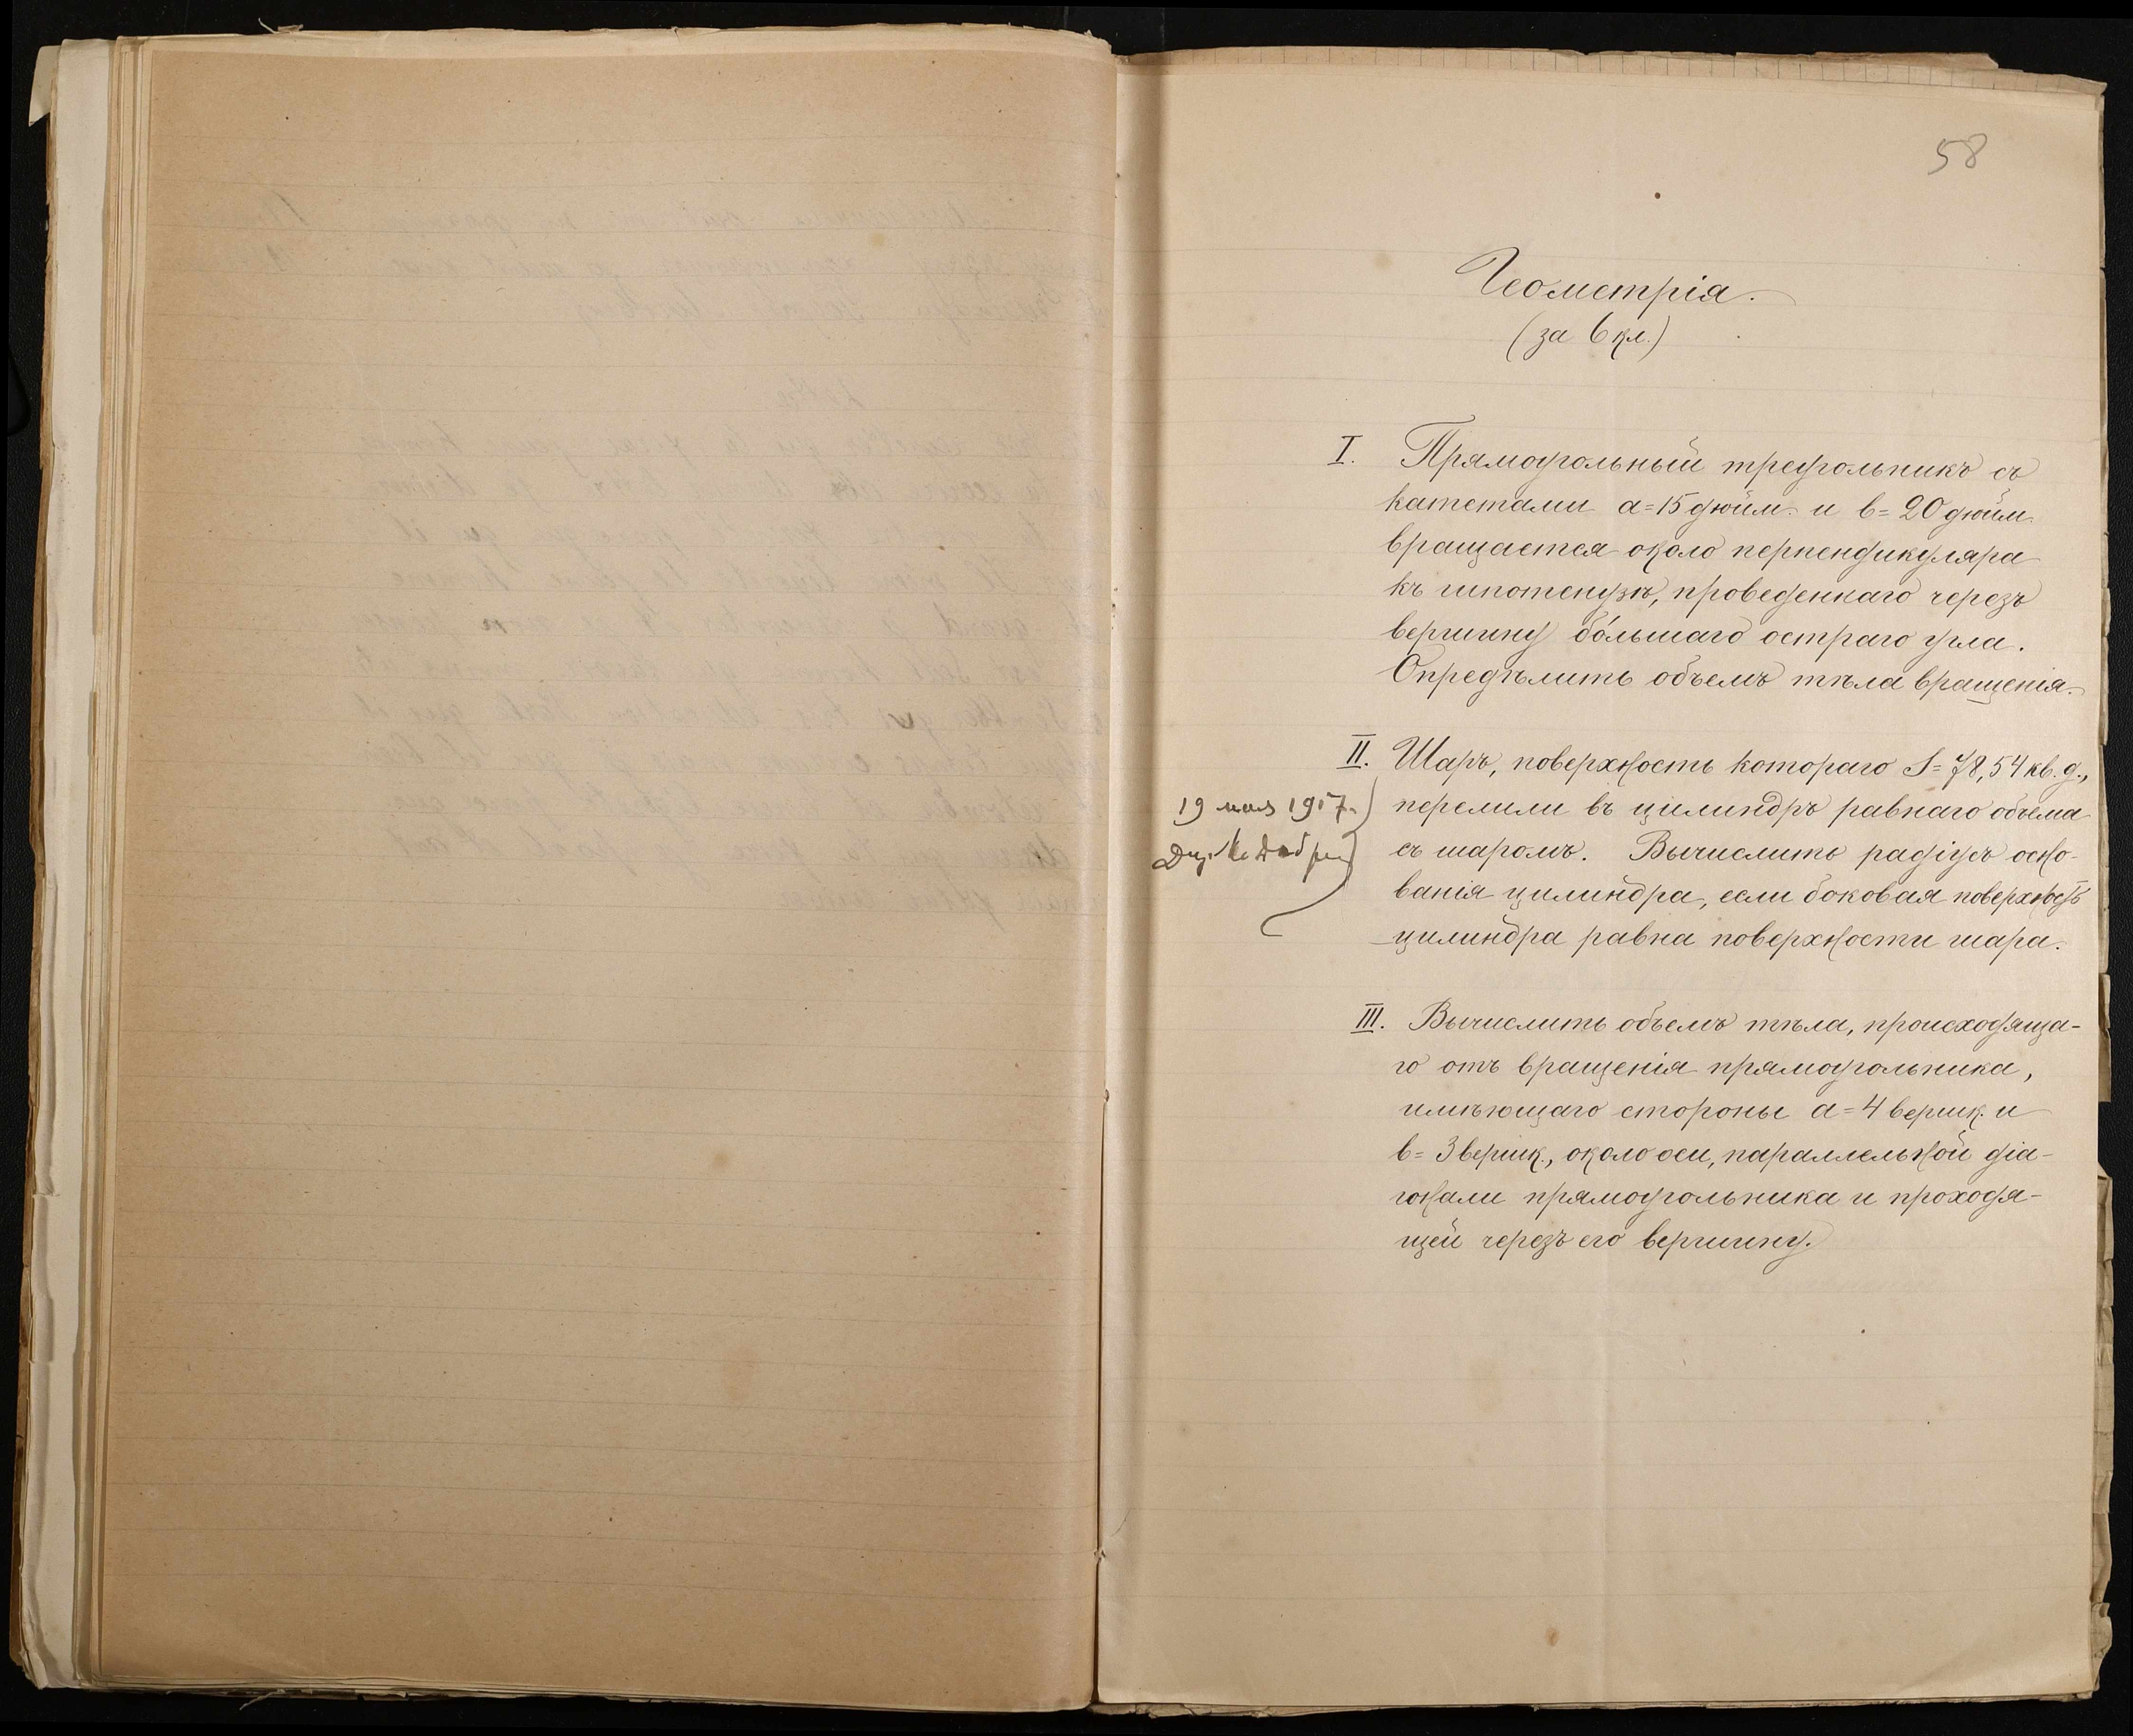 58
Геометрія.
(за 6 кл.)
I. Прямоугольный треугольникъ съ
катетами a=15 дюйм. и b=20 дюйм.
вращается около перпендикуляра
къ гипотенузѣ, проведеннаго черезъ
вершину бо́льшаго остраго угла.
Опредѣлить объемъ тѣла вращенія.
II. Шаръ, поверхность котораго S=78,54 кв. д.,
перелили въ цилиндръ равнаго объема
съ шаромъ. Вычислить радіусъ осно-
ванія цилиндра, если боковая поверхность
цилиндра равна поверхности шара.
19 мая 1917.
III. Вычислить объемъ тѣла, происходяща-
го отъ вращенія прямоугольника,
имѣющаго стороны a=4 вершк. и
b=3 вершк., около оси, параллельной діа-
гонали прямоугольника и проходя-
щей черезъ его вершину.